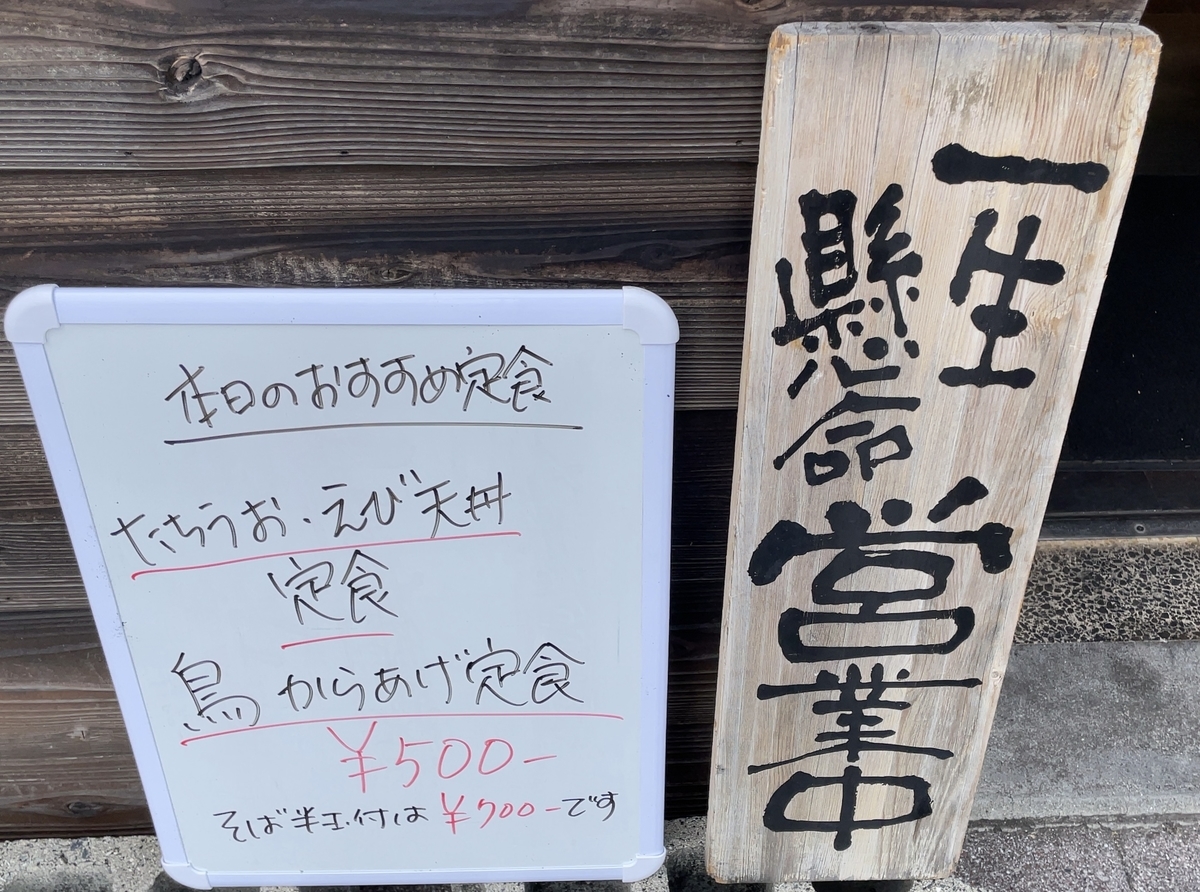 本日のおすすめ定食
たちうお・えび天丼
定食
鳥からあげ定食
¥500-
そば半玉付は¥700-です
一生
懸命
営業中